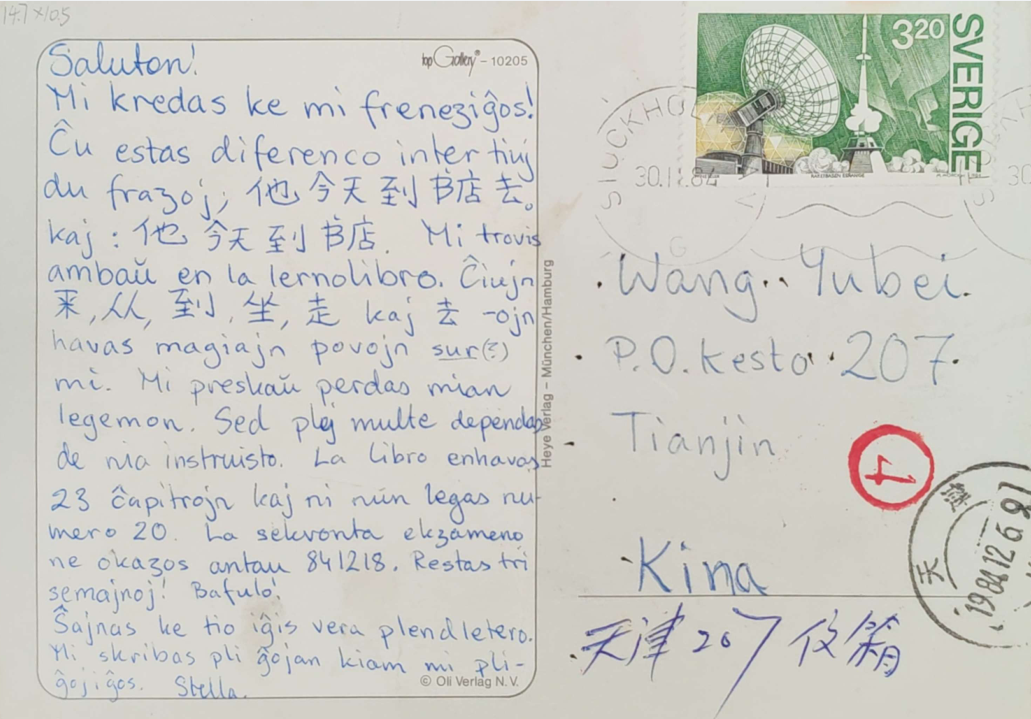 14.7 x 10.5
Saluton!
Mi kredas ke mi freneziĝos!
Ĉu estas diferenco inter tiuj
du frazoj; 他今天到书店去。
kaj: 他今天到书店. Mi trovis
ambaŭ en la lernolibro. Ĉiujn
来, 从, 到, 坐, 走 kaj 去 -ojn
havas magiajn povojn sur(?)
mi. Mi preskaŭ perdas mian
legemon. Sed plej multe dependas
de nia instruisto. La libro enhavas
23 ĉapitrojn kaj ni nun legas nu-
mero 20. La sekvonta ekzameno
ne okazos antau 841218. Restas tri
semajnoj! Bafulo!
Ŝajnas ke tio iĝis vera plendletero.
Mi skribas pli ĝojan kiam mi pli-
ĝojiĝos. Stella.
top Gallery® – 10205
© Oli Verlag N.V.
Heye Verlag – München/Hamburg
SVERIGE
320
STOCKHOLM
30.11.84
Wang Yubei.
P.O. kesto 207
Tianjin
Kina
天津 207 信箱
天津
1984.12.6